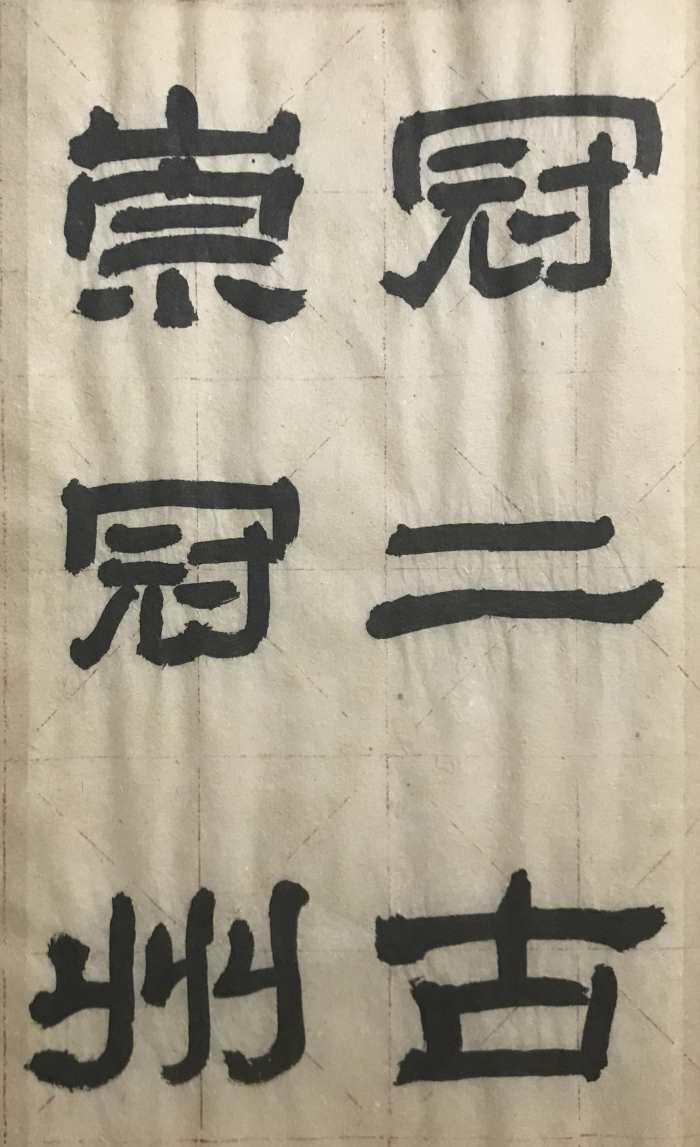 冠二古
崇冠州